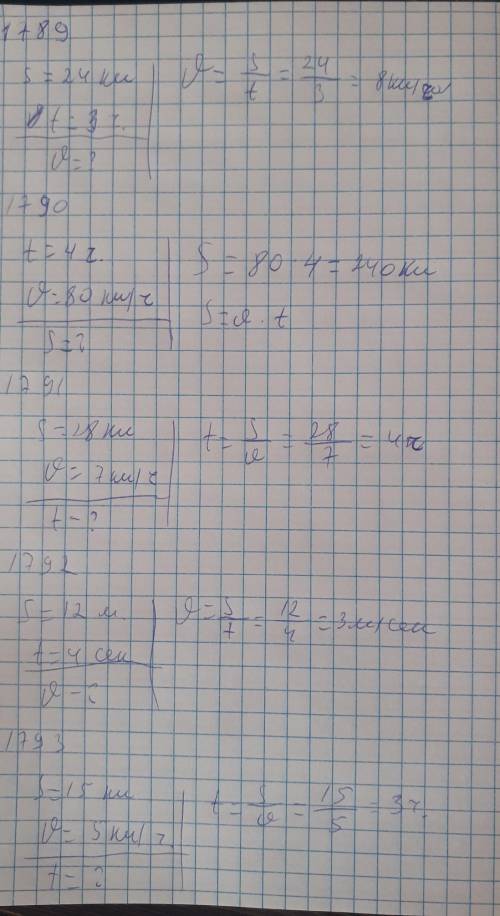 1789
S = 24 км
t = 3 ч.
v = ?
v = S/t = 24/3 = 8 км/ч
1790
t = 4 ч.
v = 80 км/ч
S = ?
S = 80 · 4 = 240 км
S = v · t
1791
S = 28 км
v = 7 км/ч
t - ?
t = S/v = 28/7 = 4 ч
1792
S = 12 м.
t = 4 сек
v - ?
v = S/t = 12/4 = 3 м/сек
1793
S = 15 км
v = 5 км/ч.
t = ?
t = S/v = 15/5 = 3 ч.